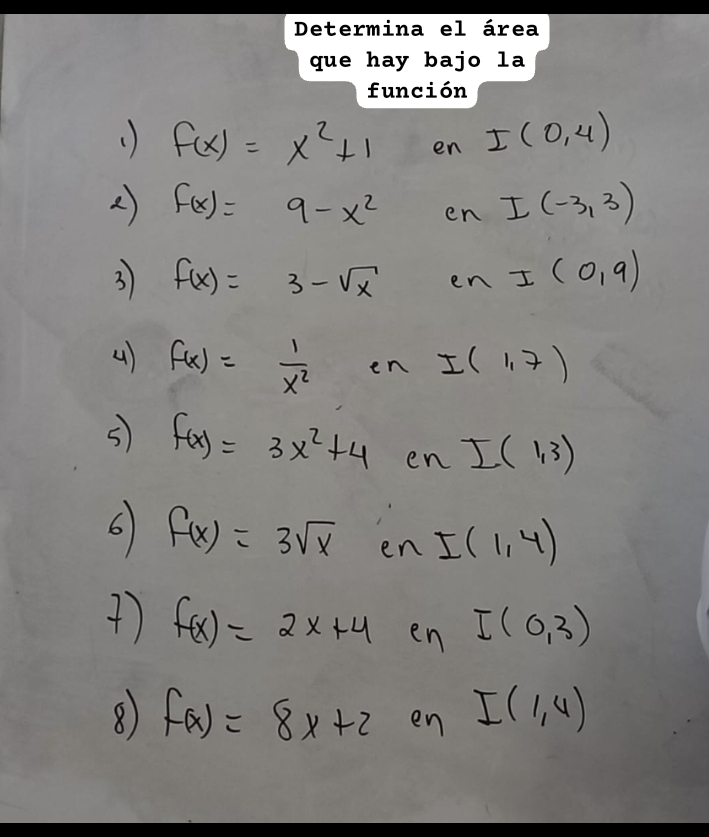 Determina el área
que hay bajo la
función
1) f(x) = x²+1 en I(0,4)
2) f(x) = 9-x² en I(-3,3)
3) f(x) = 3-√x en I(0,9)
4) f(x) = 1/x² en I(1,7)
5) f(x) = 3x²+4 en I(1,3)
6) f(x) = 3√x en I(1,4)
7) f(x) = 2x+4 en I(0,3)
8) f(x) = 8x+2 en I(1,4)